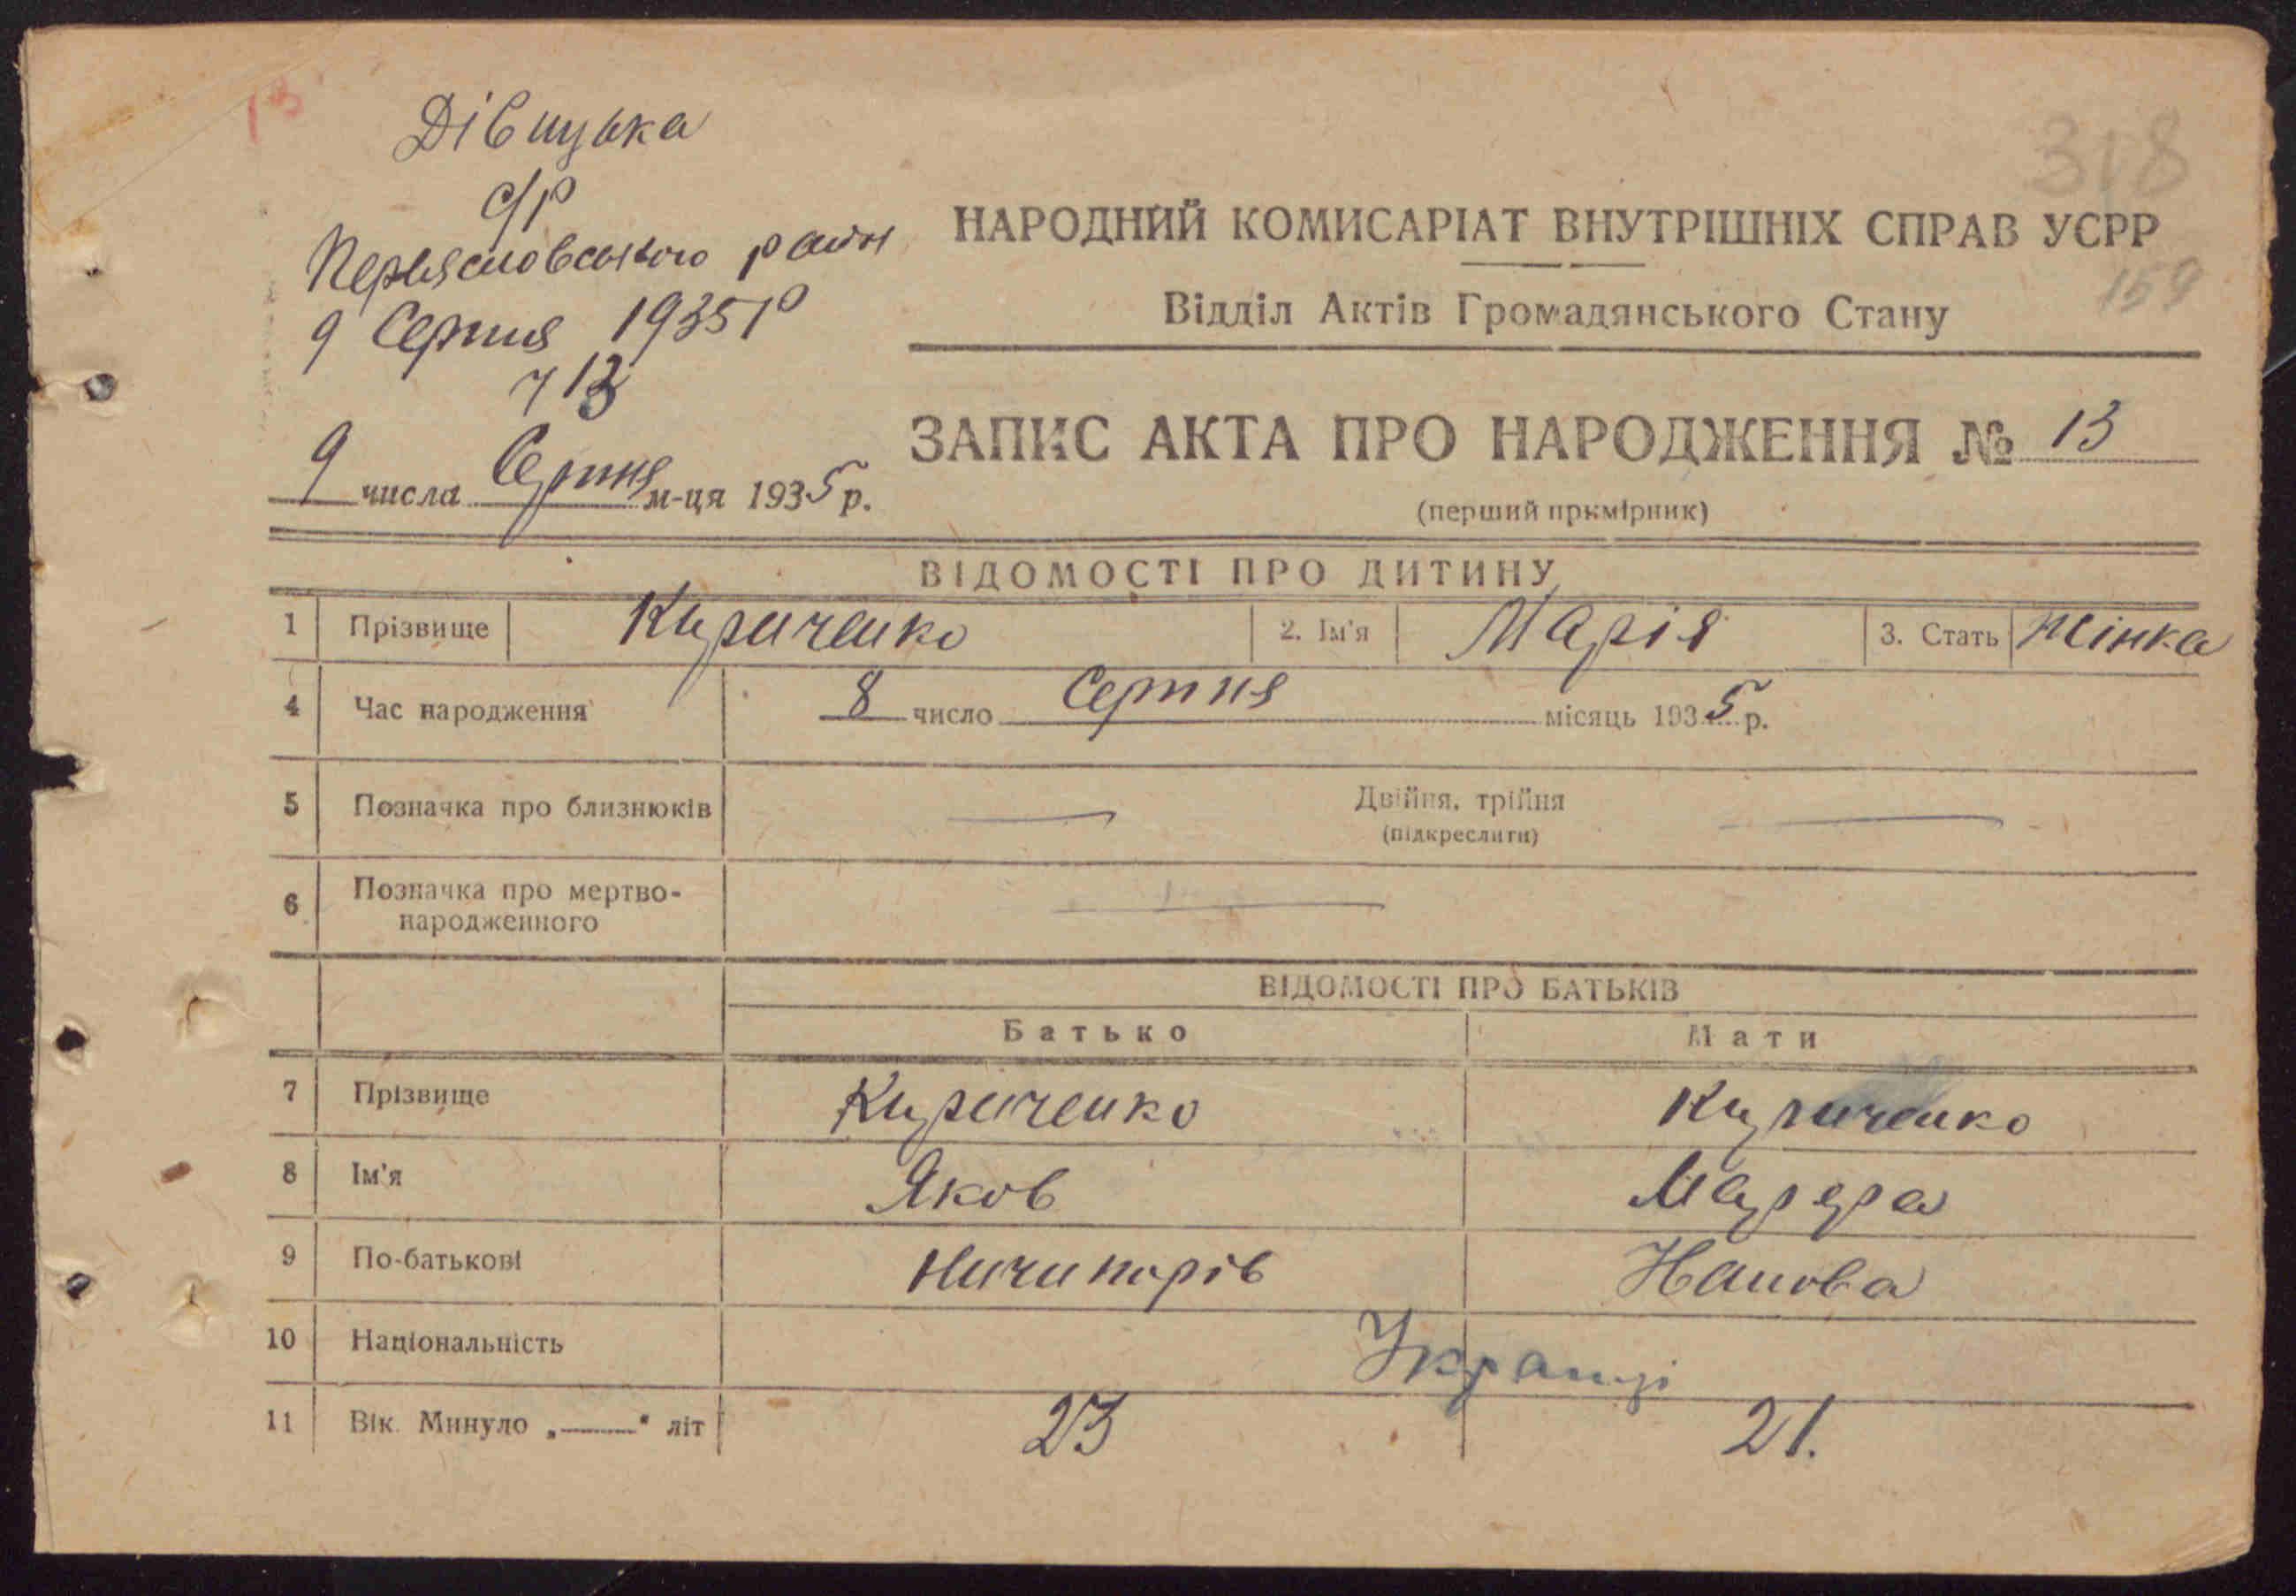 13
Дівицька
с/р
318
НАРОДНИЙ КОМИСАРІАТ ВНУТРІШНІХ СПРАВ УСРР
159
Відділ Актів Громадянського Стану
9 Серпня 1935 р
ч 13
ЗАПИС АКТА ПРО НАРОДЖЕННЯ № 13
9 числа Серпня м-ця 1935 р.
(перший примірник)
ВІДОМОСТІ ПРО ДИТИНУ
1 Прізвище Кириченко 2. Ім'я Марія 3. Стать Жінка
4 Час народження 8 число Серпня місяць 1935 р.
5 Позначка про близнюків Двійня, трійня
(підкреслити)
6 Позначка про мертво-
народженного
ВІДОМОСТІ ПРО БАТЬКІВ
Батько Мати
7 Прізвище Кириченко Кириченко
8 Ім'я Яков
9 По-батькові Ничипорів
10 Національність Украінці
11 Вік. Минуло „——" літ 23 21.